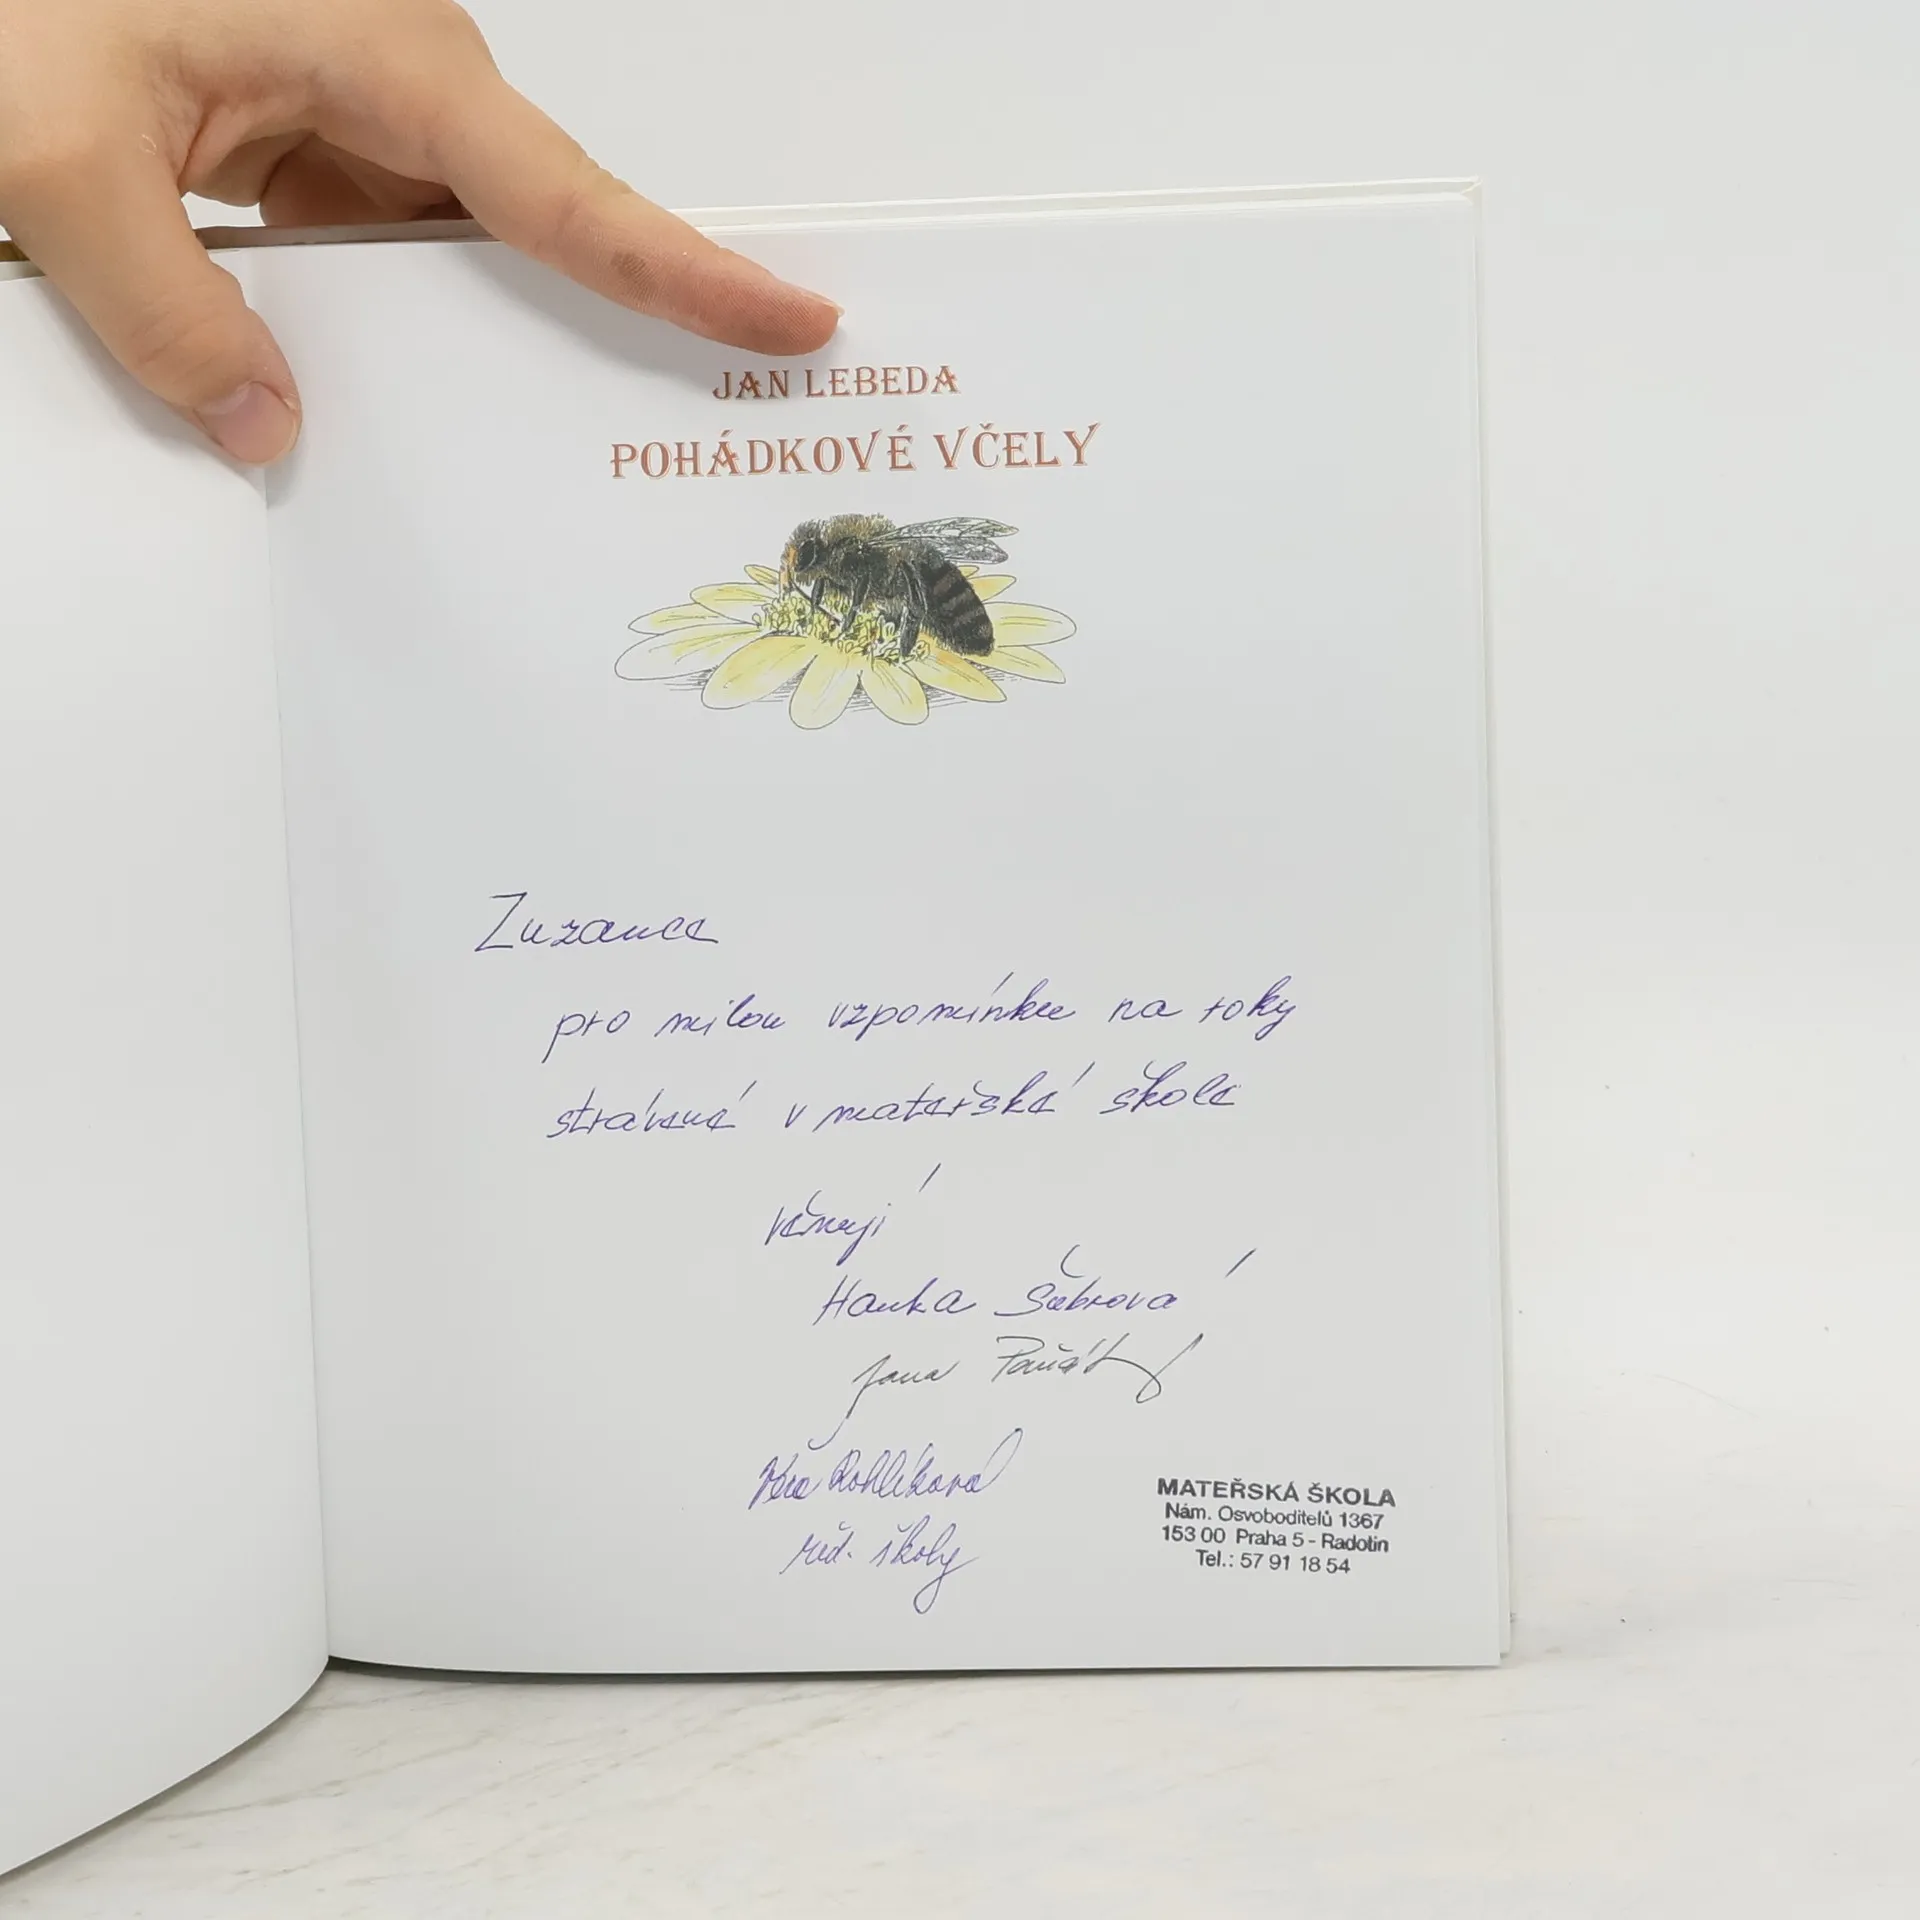 JAN LEBEDA
POHÁDKOVÉ VČELY
Zuzance
pro milou vzpomínku na roky
strávené v mateřské škole
věnují
Hanka Šubrová
Jana
Věra Rohlíková
řed. školy
MATEŘSKÁ ŠKOLA
Nám. Osvoboditelů 1367
153 00 Praha 5 - Radotín
Tel.: 57 91 18 54